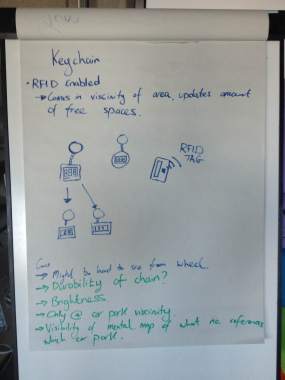 Keychain
• RFID Enabled
→ Comes in viscinity of area, updates amount
of free spaces.
RFID
TAG
Cons
→ Might be hard to see from wheel.
→ Durability of chain?
→ Brightness
→ Only @ car park viscinity
→ Visibility of mental map of what no. references
which car park.